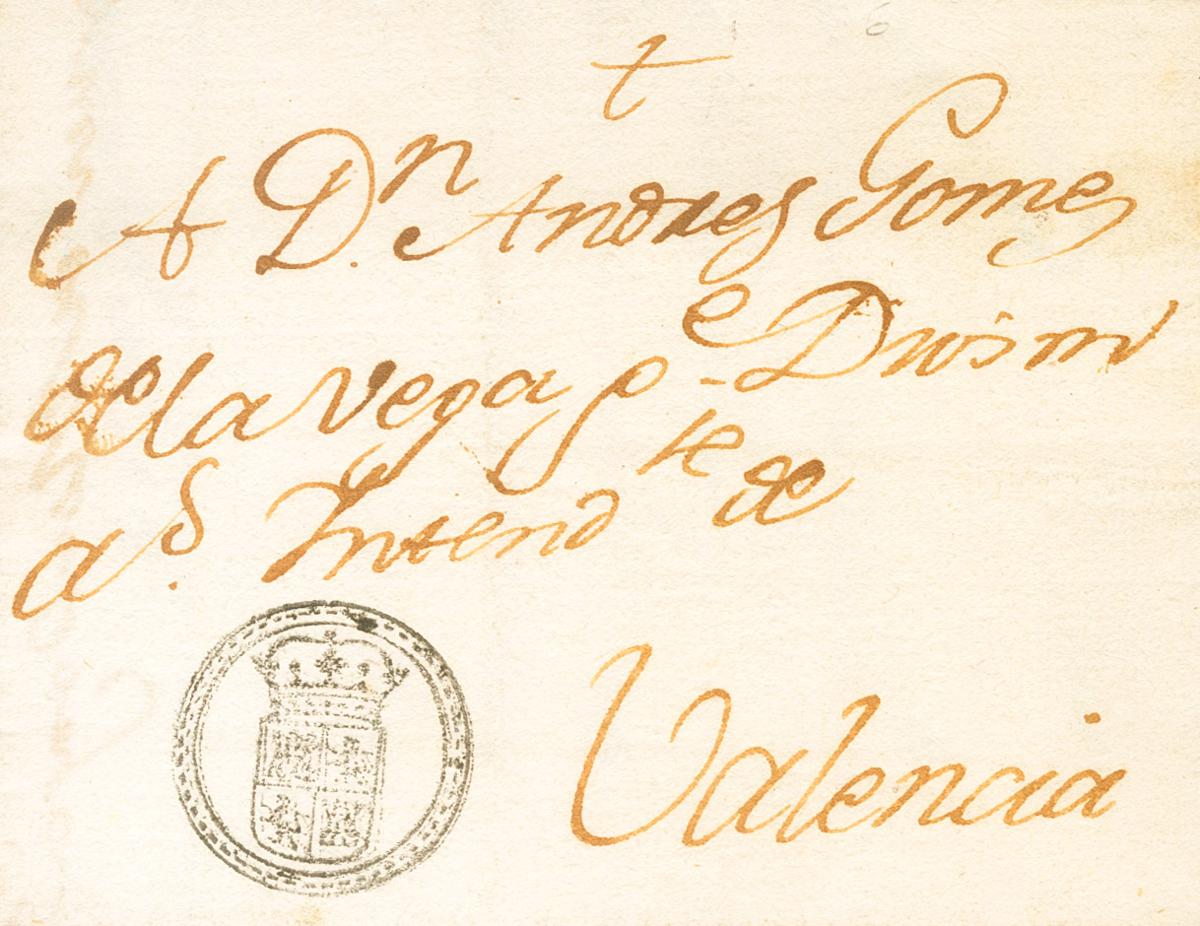 A D.n Andres Gomez
de la Vega y p.e Dios m
a.s Intend te de
Valencia